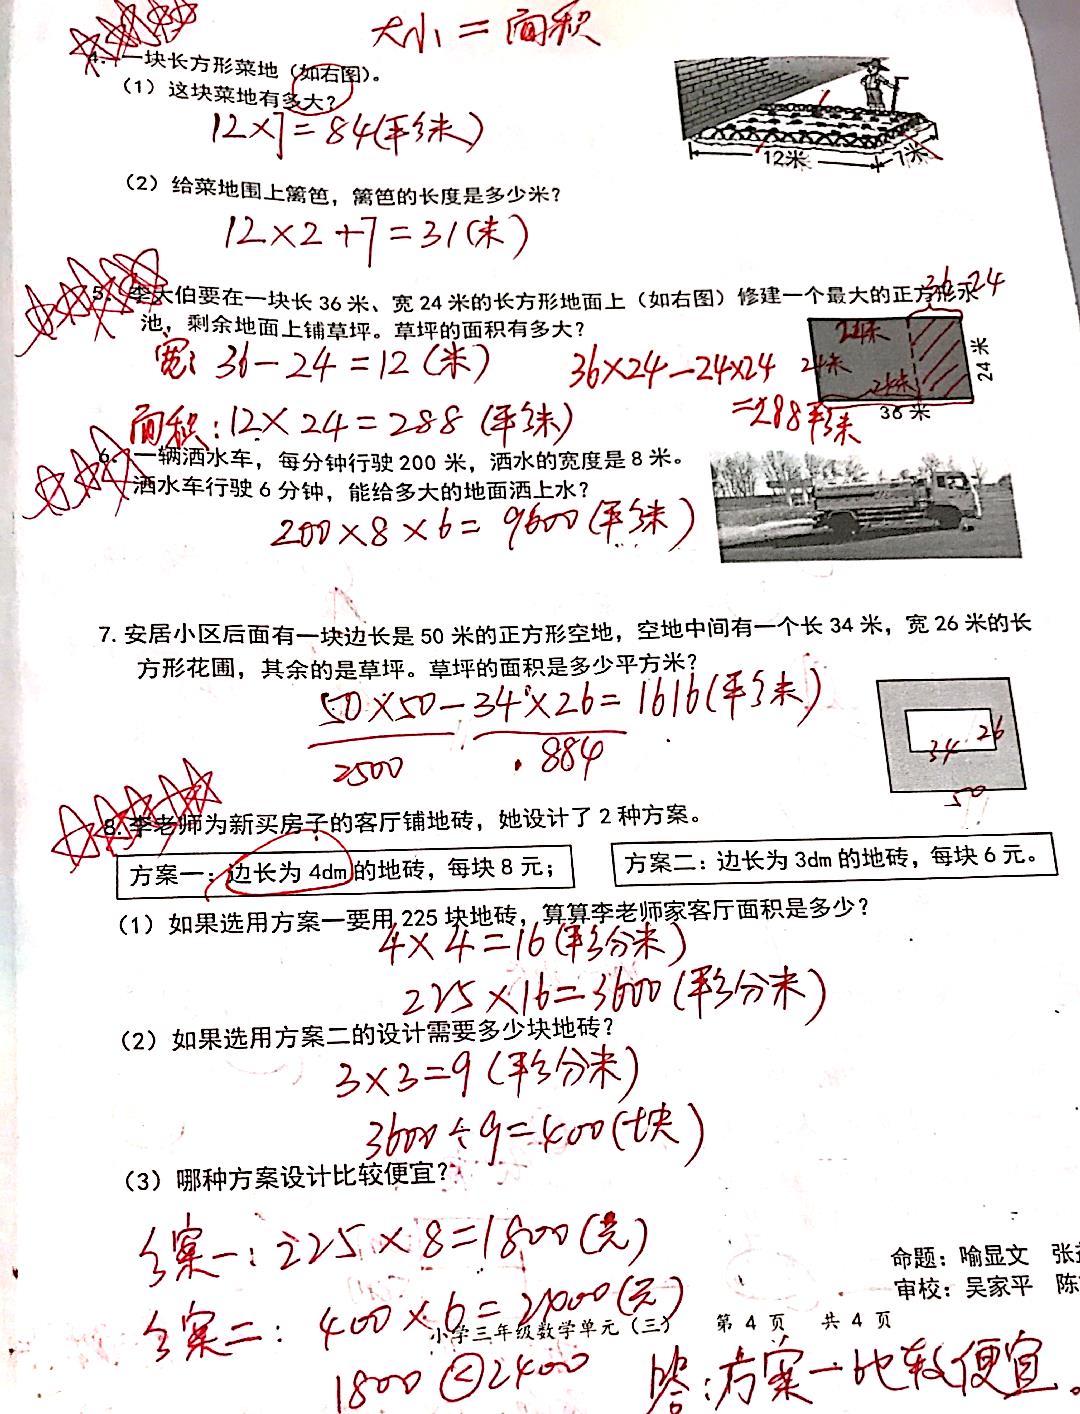 大小=面积
4. 一块长方形菜地（如右图）。
（1）这块菜地有多大？
12×7=84(平方米)
12米 7米
（2）给菜地围上篱笆，篱笆的长度是多少米？
12×2+7=31(米)
5. 李大伯要在一块长 36 米、宽 24 米的长方形地面上（如右图）修建一个最大的正方形水
池，剩余地面上铺草坪。草坪的面积有多大？
36-24
24米
24米
24米
24米
36 米
宽: 36-24=12(米)
36×24-24×24
=288平方米
面积:12×24=288(平方米)
6. 一辆洒水车，每分钟行驶 200 米，洒水的宽度是 8 米。
洒水车行驶 6 分钟，能给多大的地面洒上水？
200×8×6=9600(平方米)
7. 安居小区后面有一块边长是 50 米的正方形空地，空地中间有一个长 34 米，宽 26 米的长
方形花圃，其余的是草坪。草坪的面积是多少平方米？
50×50-34×26=1616(平方米)
2500 884
34 26
50
8. 李老师为新买房子的客厅铺地砖，她设计了 2 种方案。
方案一：边长为 4dm 的地砖，每块 8 元；
方案二：边长为 3dm 的地砖，每块 6 元。
（1）如果选用方案一要用 225 块地砖，算算李老师家客厅面积是多少？
4×4=16(平方分米)
225×16=3600(平方分米)
（2）如果选用方案二的设计需要多少块地砖？
3×3=9(平方分米)
3600÷9=400(块)
（3）哪种方案设计比较便宜？
方案一:225×8=1800(元)
方案二:400×6=2400(元)
1800<2400
答:方案一比较便宜。
命题：喻显文 张
审校：吴家平 陈
小学三年级数学单元（三） 第 4 页 共 4 页